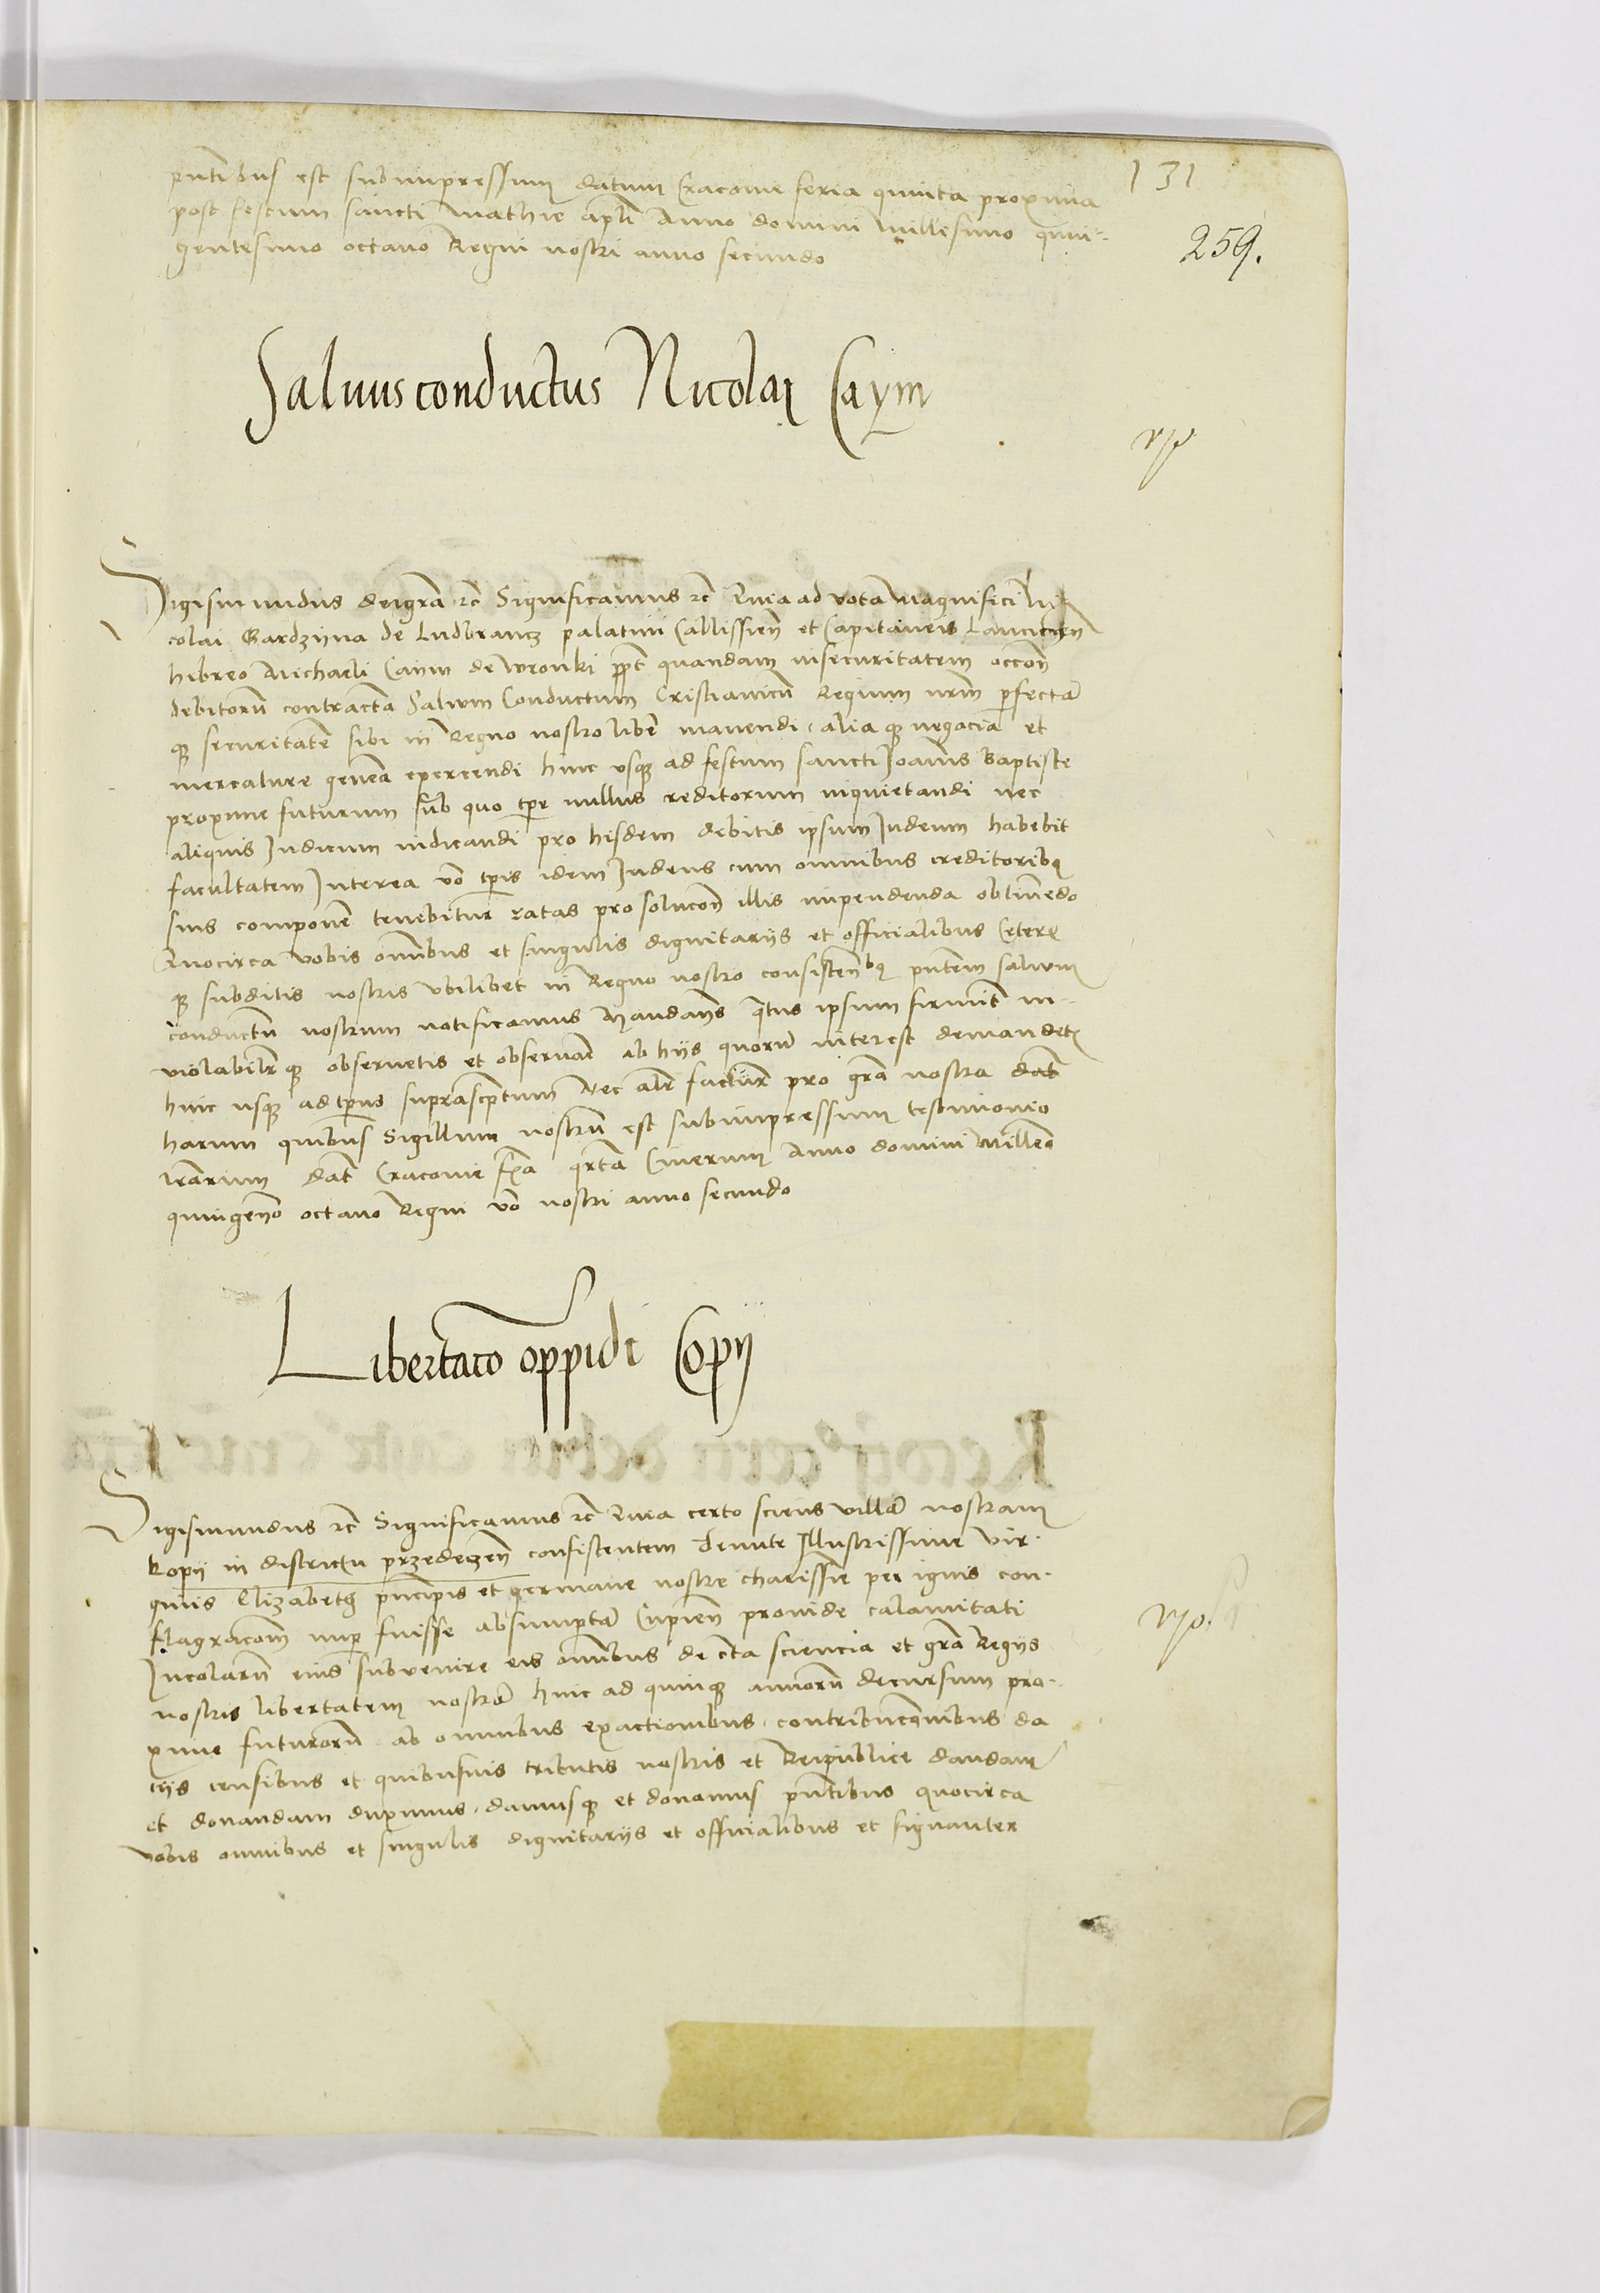 131
pntibus est subimpressum datum Cracovie feria quinta proxima
post festum sancti Mathie apli Anno domini Millesimo quin-
gentesimo octavo Regni nostri anno secundo
259.
Salvus conductus Nicolai Caym
Sigismundus dei gra rc Significamus rc Quia ad vota Magnifici Ni
colai Gardzyna de Ludbrancz palatini Callissien et Capitaneis Lancicien
hebreo Michaeli Caym de Wronki ppt quandam insecuritatem occon
debitoru contracta Salvum Conductum Cristianicu Regium nrm perfecta
qz securitate sibi in Regno nostro libe manendi alia qz negacia et
mercature genera exercendi hinc usqz ad festum sancti Joanis Baptiste
proxime futurum sub quo tpre nullus creditorum inquietandi nec
aliquis Judicum iudicandi pro hisdem debitis ipsum Judeum habebit
facultatem Interea vo tpris idem Judeus cum omnibus creditoribq
suis componere tenebitur ratas pro solucoe illis impendenda obtinedo
Quocirca vobis omibus et singulis dignitariis et officialibus Ceteris
qz subditis nostris ubilibet in Regno nostro consistenbq pntem salvum
conductu nostrum notificamus Mandans qtus ipsum firmit in-
violabilr qz observetis et observari ab hiis quoru interest demandetis
hinc usqz ad tprus suprascptum Nec alr facturi pro gra nostra dat
harum quibus Sigillum nostru est subimpressum testimonio
lrarum dat Cracovie fria qrta Cinerum Anno domini Milleo
quingeno octavo Regni vo nostri anno secundo
Libertaco oppidi Copy
Sigismundus rc Significamus rc Quia certo sciens villa nostram
Kopy in districtu przedeczen consistentem Tenute Illustrissime Vir-
ginis Elizabeth principis et germane nostre charissie per ignis con-
flagracom nup fuisse absumpta Cupien provide calamitati
Incolaru eius subvenire eis omibus de cta sciencia et gra Regiis
nostris libertatem nostra hinc ad quinqz annoru decursum pro-
xime futuroru ab omnibus exactionibus contribucoibus da
ciis censibus et quibusvis tributis nostris et Reipublice dandam
et donandam duximus damusqz et donamus pntibus quocirca
vobis omnibus et singulis dignitariis et officialibus et signanter